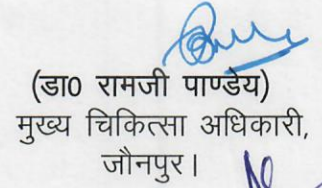 (डा0 रामजी पाण्डेय)
मुख्य चिकित्सा अधिकारी,
जौनपुर।